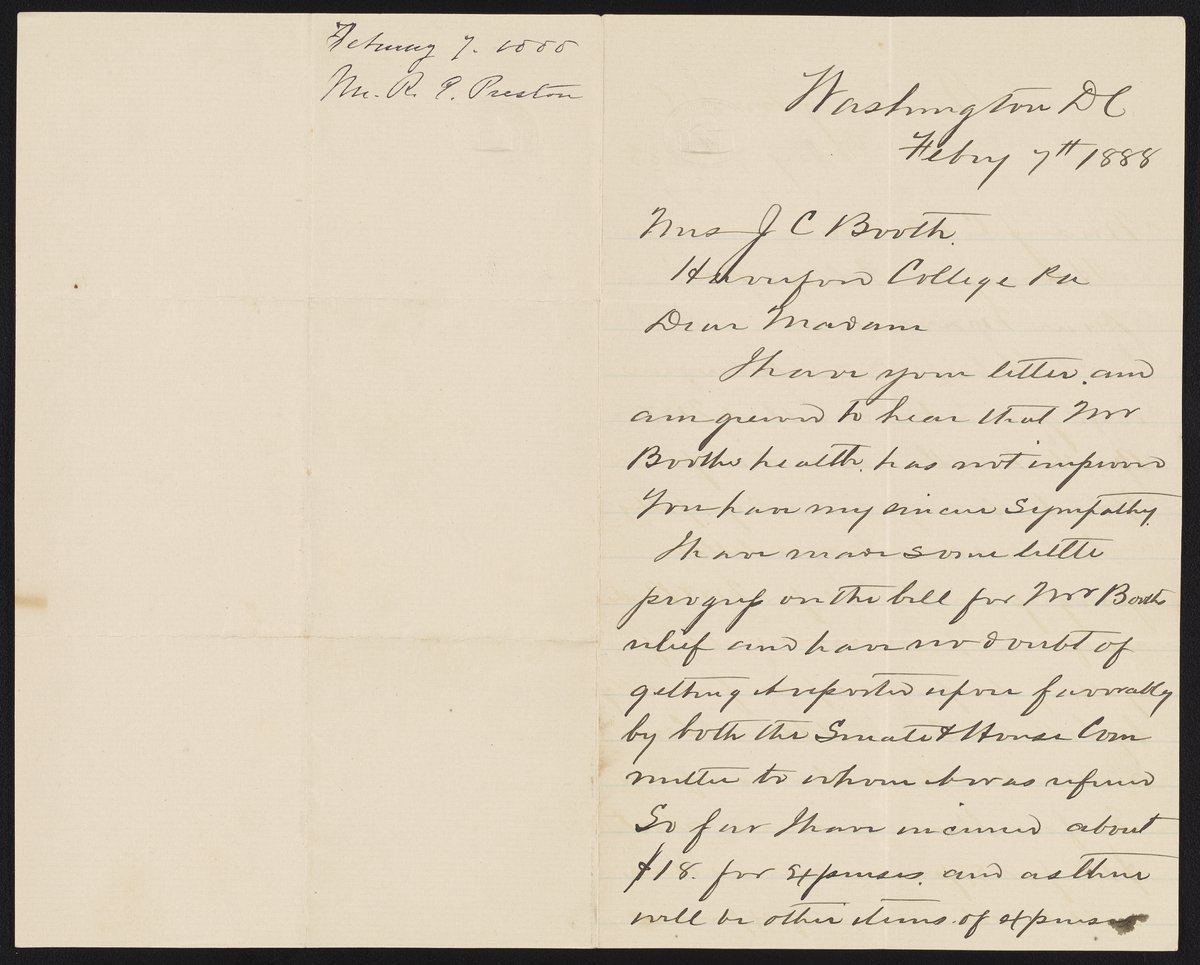 February 7. 1888
Mr. R. E. Preston
Washington DC
Febry 7th 1888
Mrs J C Booth.
Haverford College Pa
Dear Madam
I have your letter, and
am grieved to hear that Mr
Booths health, has not improved
You have my sincere sympathy.
I have made some little
progress on the bill for Mr Booths
relief and have no doubt of
getting it reported upon favorably
by both the Senate & House Com
mittee to whom it was referred
So far I have incurred about
$18. for expenses, and as there
will be other items of expenses